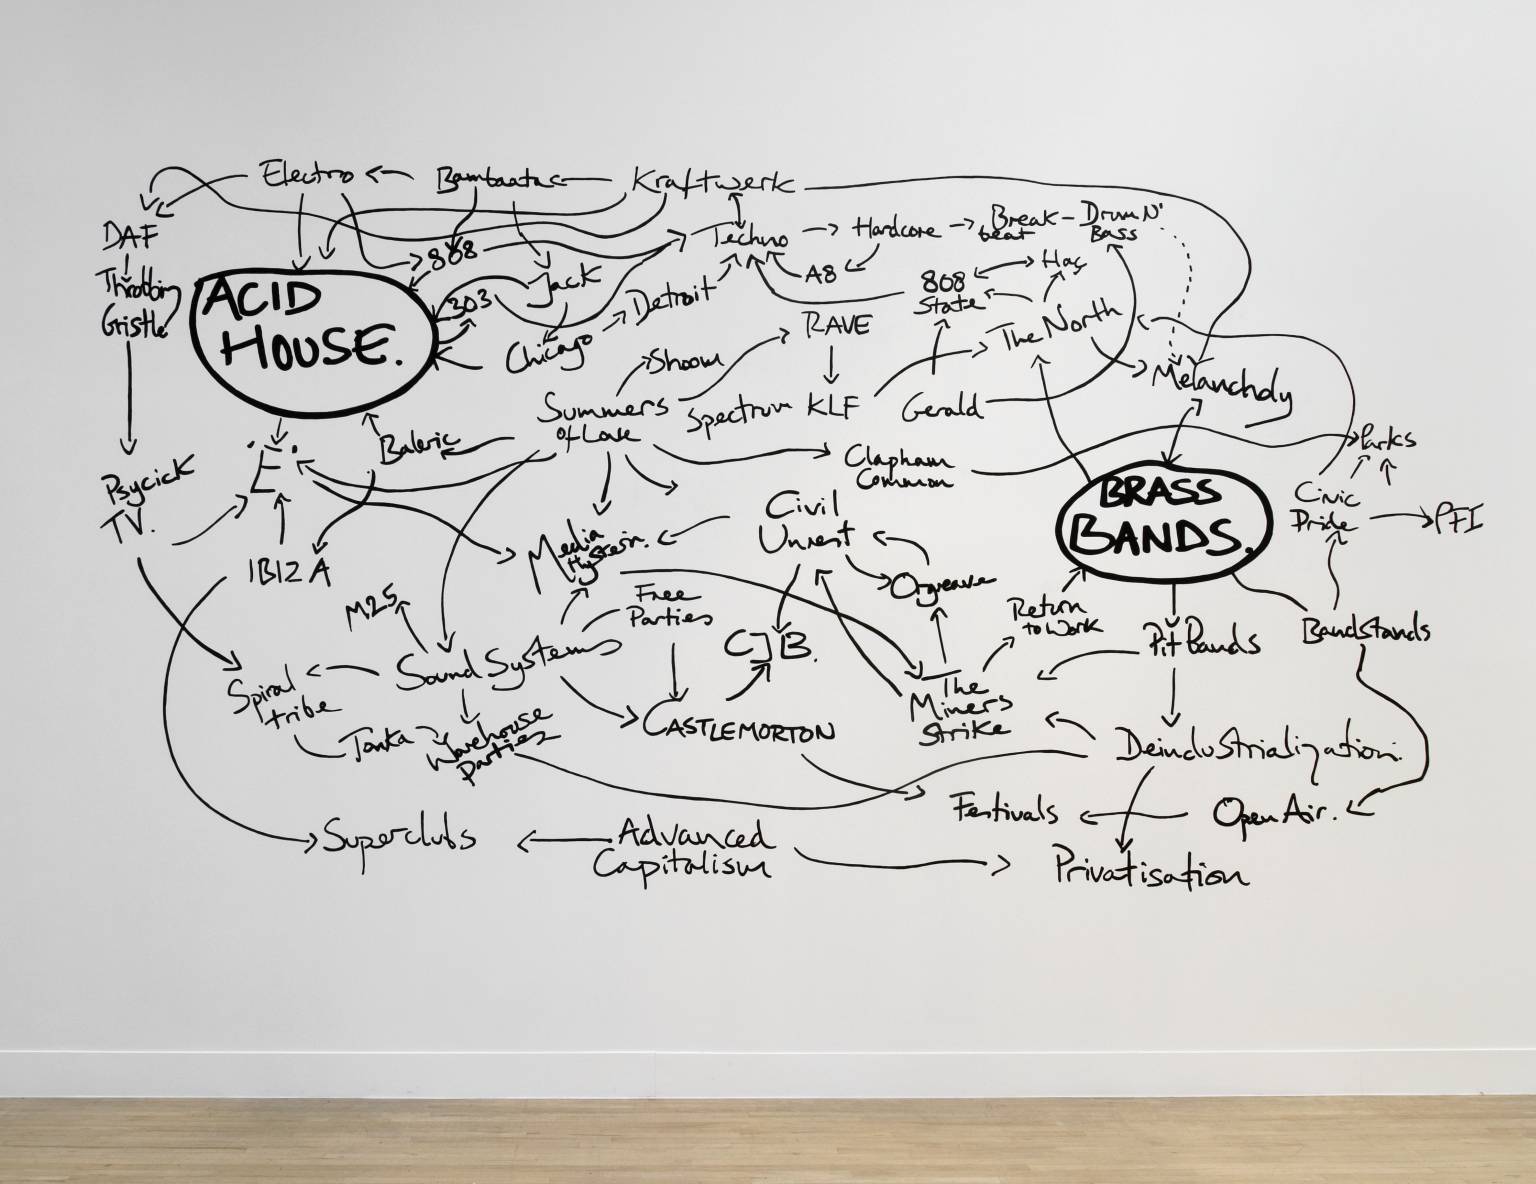 Electro
Bambaata
Kraftwerk
DAF
Throbbing
Gristle
808
303
Jack
Techno
Hardcore
Break
beat
Drum N'
Bass
A8
808
State
Haç
ACID
HOUSE.
Chicago
Detroit
RAVE
The North
Shoom
Summers
of Love
Spectrum
KLF
Gerald
Melancholy
Baleric
'E'.
Clapham
Common
Parks
Psycick
TV.
IBIZA
Media
Hysteria.
Civil
Unrest
BRASS
BANDS.
Civic
Pride
PFI
M25
Free
Parties
Orgreave
Return
to Work
CJB.
Pit Bands
Bandstands
Sound Systems
Spiral
tribe
Tonka
Warehouse
parties
CASTLEMORTON
The
Miners
Strike
Deindustrialization.
Festivals
Open Air.
Superclubs
Advanced
Capitalism
Privatisation